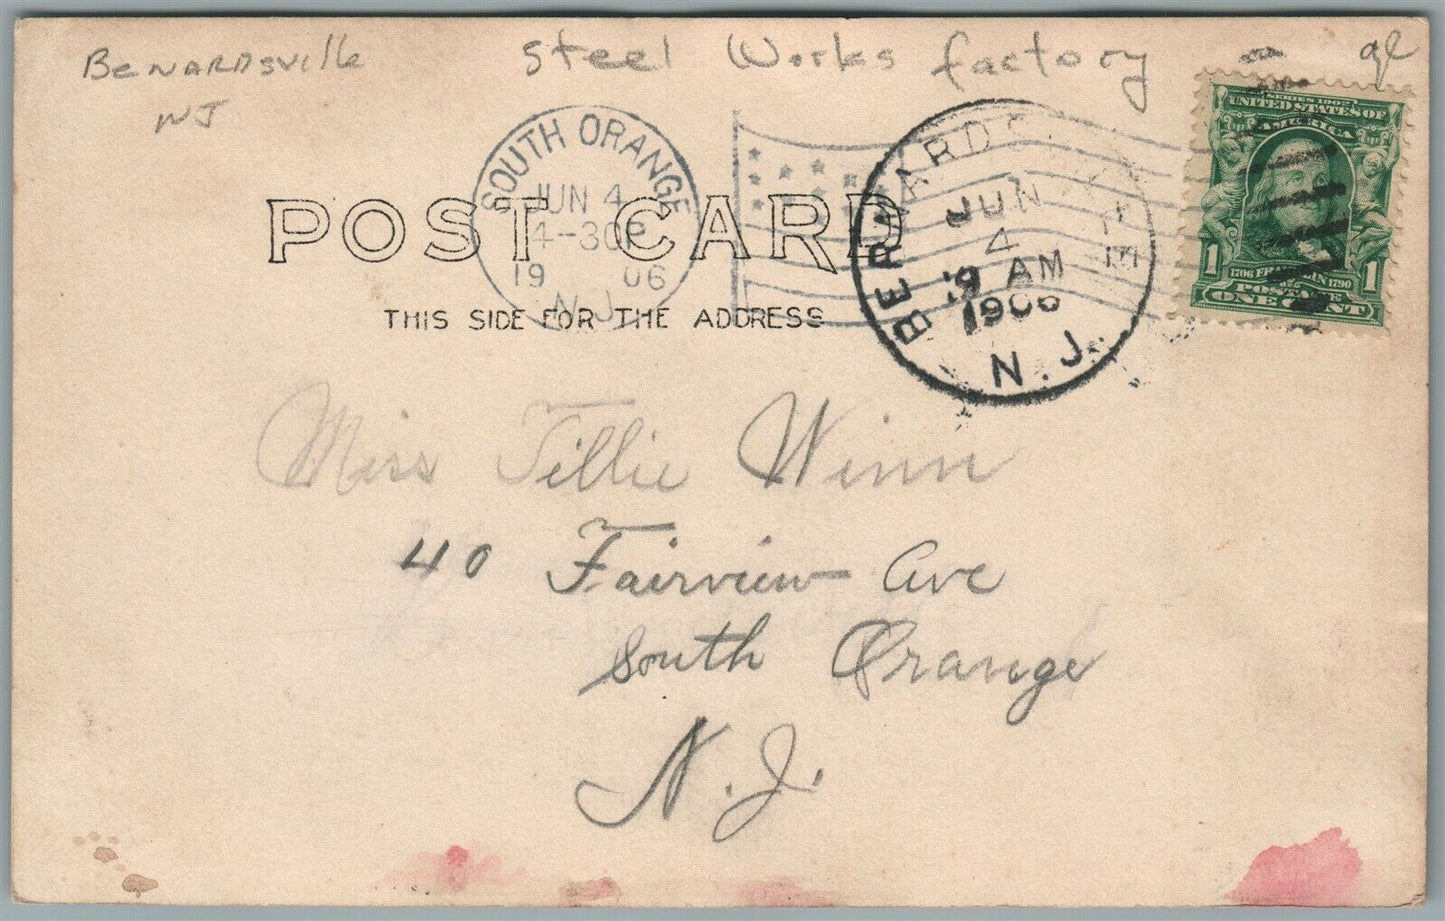 Bernardsville
NJ
Steel Works factory
SOUTH ORANGE
JUN 4
4-30P
1906
N.J.
BERNARDSVILLE
JUN
4
9 AM
1906
N.J.
SERIES 1902
UNITED STATES OF
AMERICA
1706 FRANKLIN 1790
1 1
POSTAGE
ONE CENT
POST CARD
THIS SIDE FOR THE ADDRESS
Miss Tillie Winn
40 Fairview Ave
South Orange
N.J.